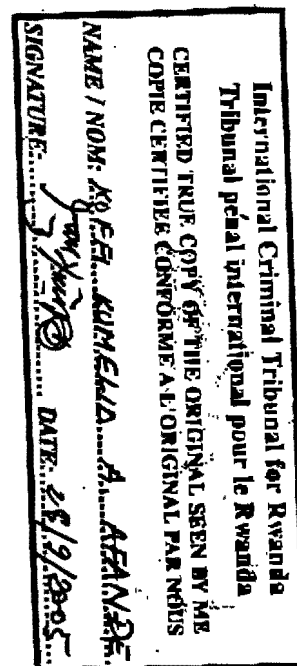 International Criminal Tribunal for Rwanda
Tribunal pénal international pour le Rwanda
CERTIFIED TRUE COPY OF THE ORIGINAL SEEN BY ME
COPIE CERTIFIEE CONFORME A L'ORIGINAL PAR NOUS
NAME / NOM: KOFFI KUMELIO A. AFANDE
SIGNATURE: DATE: 28/9/2005